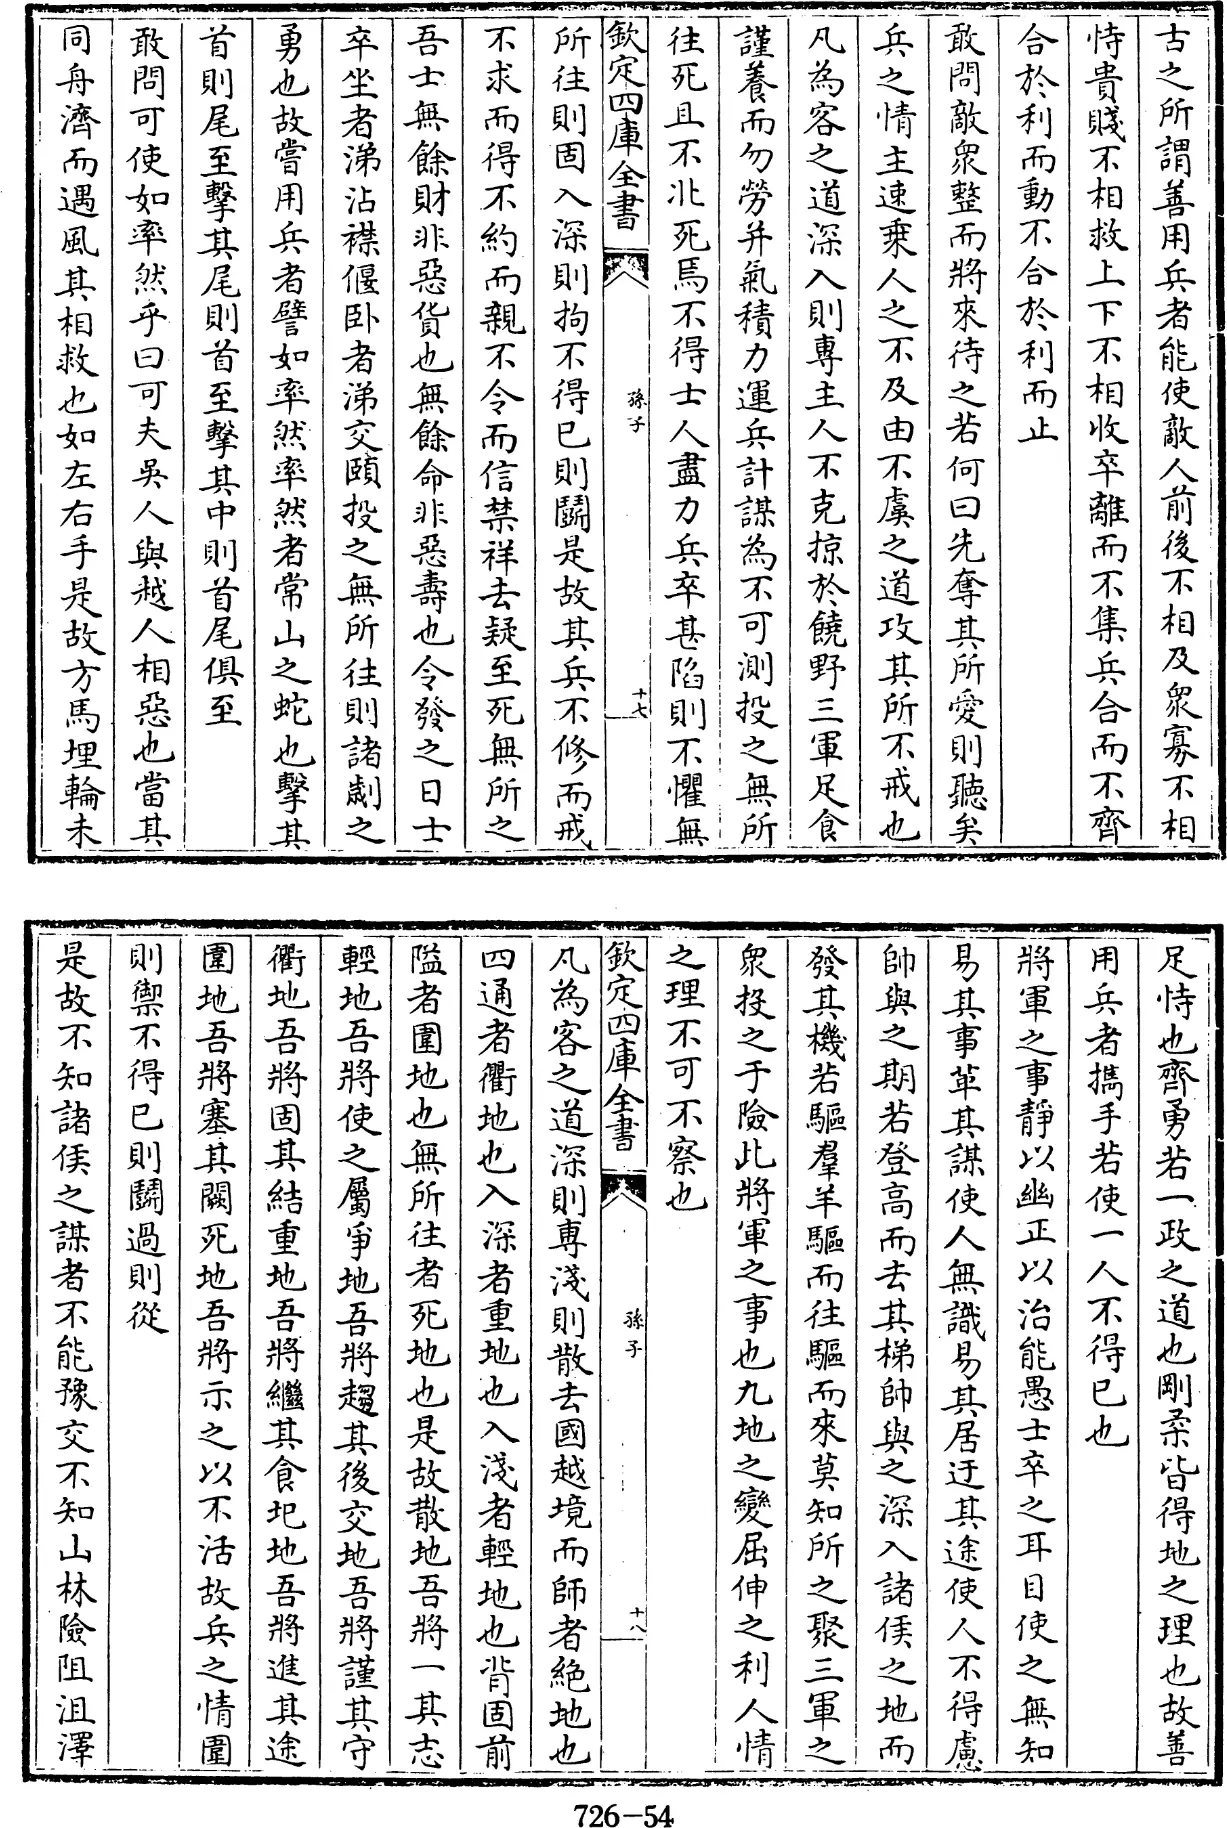 古之所謂善用兵者能使敵人前後不相及衆寡不相
恃貴賤不相救上下不相收卒離而不集兵合而不齊
合於利而動不合於利而止
敢問敵衆整而將來待之若何曰先奪其所愛則聽矣
兵之情主速乘人之不及由不虞之道攻其所不戒也
凡為客之道深入則專主人不克掠於饒野三軍足食
謹養而勿勞并氣積力運兵計謀為不可測投之無所
往死且不北死焉不得士人盡力兵卒甚陷則不懼無
欽定四庫全書
孫子
十七
所往則固入深則拘不得已則鬬是故其兵不修而戒
不求而得不約而親不令而信禁祥去疑至死無所之
吾士無餘財非惡貨也無餘命非惡壽也令發之日士
卒坐者涕沾襟偃卧者涕交頤投之無所往則諸劌之
勇也故嘗用兵者譬如率然率然者常山之蛇也擊其
首則尾至擊其尾則首至擊其中則首尾俱至
敢問可使如率然乎曰可夫吳人與越人相惡也當其
同舟濟而遇風其相救也如左右手是故方馬埋輪未
足恃也齊勇若一政之道也剛柔皆得地之理也故善
用兵者擕手若使一人不得已也
將軍之事靜以幽正以治能愚士卒之耳目使之無知
易其事革其謀使人無識易其居迂其途使人不得慮
帥與之期若登高而去其梯帥與之深入諸侯之地而
發其機若驅羣羊驅而往驅而來莫知所之聚三軍之
衆投之于險此將軍之事也九地之變屈伸之利人情
之理不可不察也
欽定四庫全書
孫子
十八
凡為客之道深則專淺則散去國越境而師者絶地也
四通者衢地也入深者重地也入淺者輕地也背固前
隘者圍地也無所往者死地也是故散地吾將一其志
輕地吾將使之屬爭地吾將趨其後交地吾將謹其守
衢地吾將固其結重地吾將繼其食圯地吾將進其途
圍地吾將塞其闕死地吾將示之以不活故兵之情圍
則禦不得已則鬬過則從
是故不知諸侯之謀者不能豫交不知山林險阻沮澤
726-54